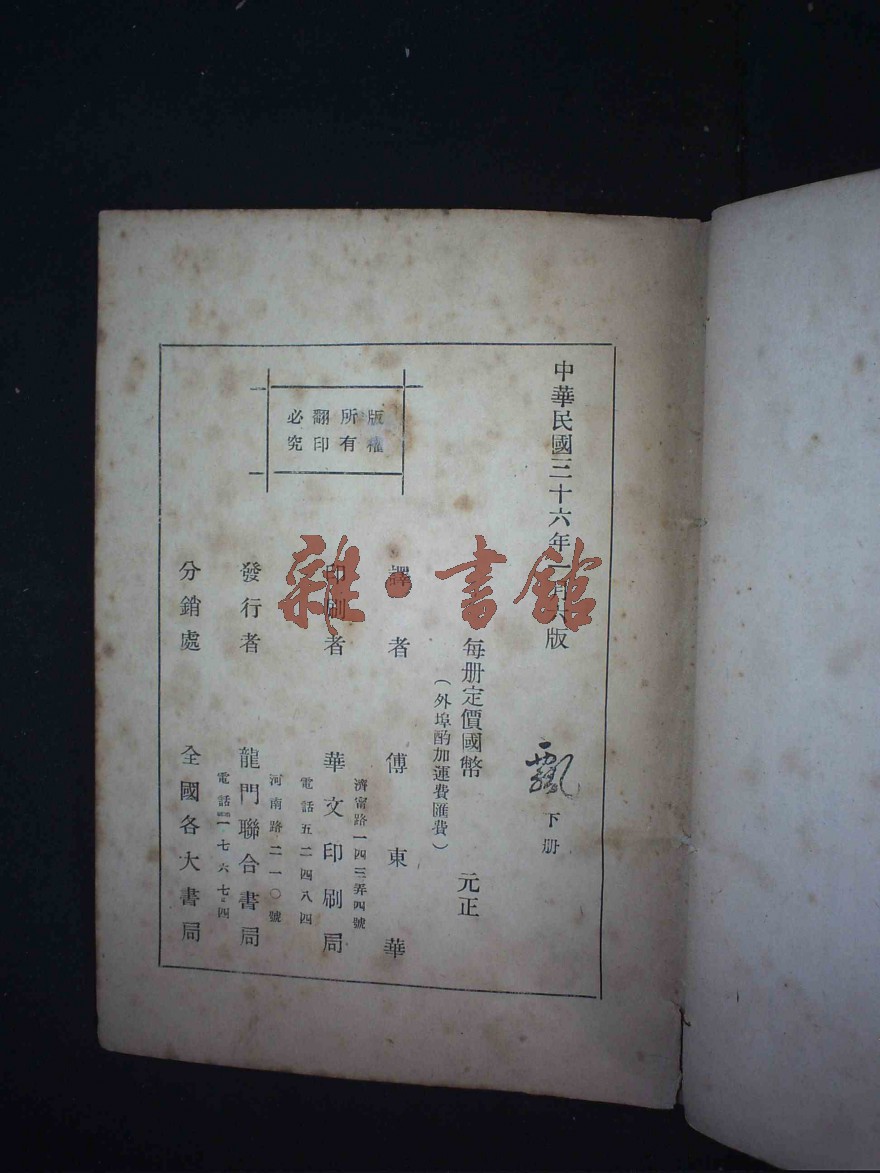 中華民國三十六年一月六版
飄 下册
每册定價國幣 元正
(外埠酌加運費匯費)
版權
所有
翻印
必究
譯者 傅東華
濟甯路一四三弄四號
印刷者 華文印刷局
電話五二四八四
河南路二一〇號
發行者 龍門聯合書局
電話一七六七四
分銷處 全國各大書局
雜·書館